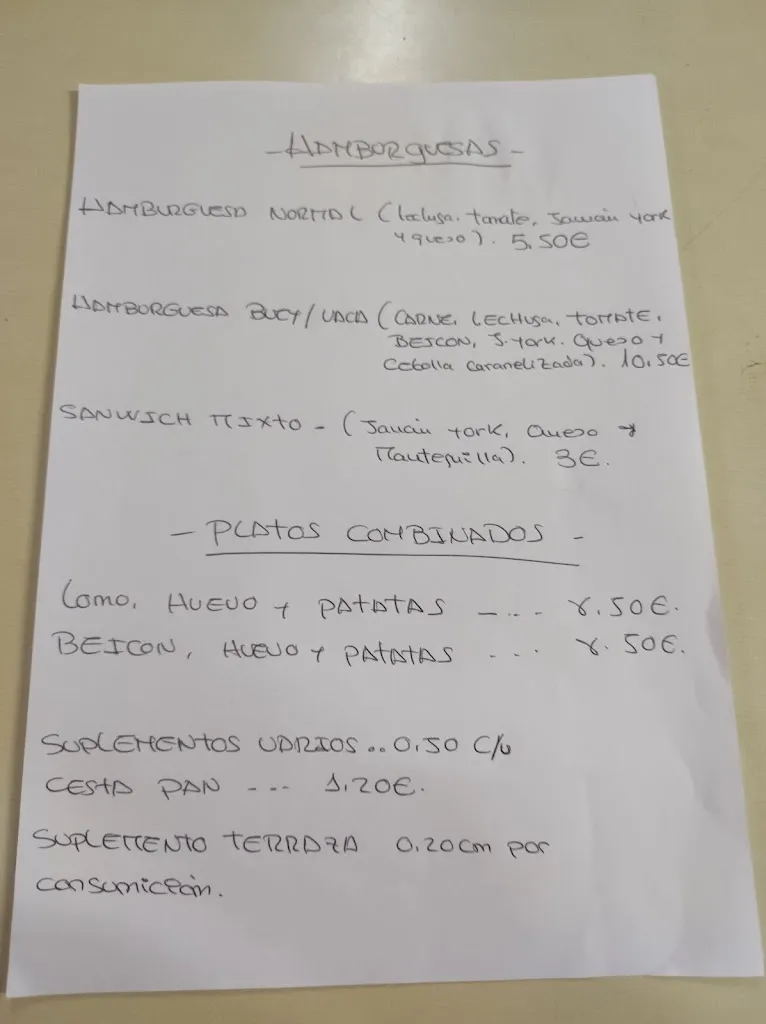 - HAMBORGUESAS -
HAMBURGUESA NORMAL (lechuga, tomate, Jamón York
y queso). 5,50€
HAMBORGUESA BUEY/VACA (CARNE, LECHUGA, TOMATE,
BEICON, J. York. Queso y
Cebolla caramelizada). 10,50€
SANWICH MIXTO - (Jamón York, Queso y
Mantequilla). 3€.
- PLATOS COMBINADOS -
Lomo, HUEVO y PATATAS - - . . 8.50€.
BEICON, HUEVO y PATATAS . . . 8.50€.
SUPLEMENTOS VARIOS .. 0,50 C/u
CESTA PAN --- 1,20€.
SUPLEMENTO TERRAZA 0,20cm por
consumición.